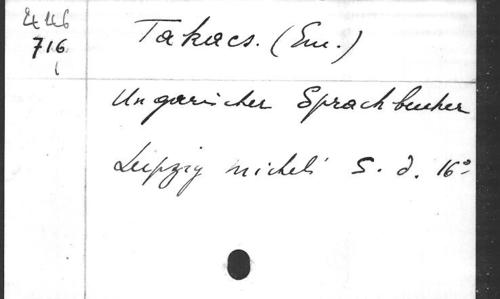 716
Takacs. (Em.)
Ungarischer Sprachbucher
Leipzig s. d. 16°